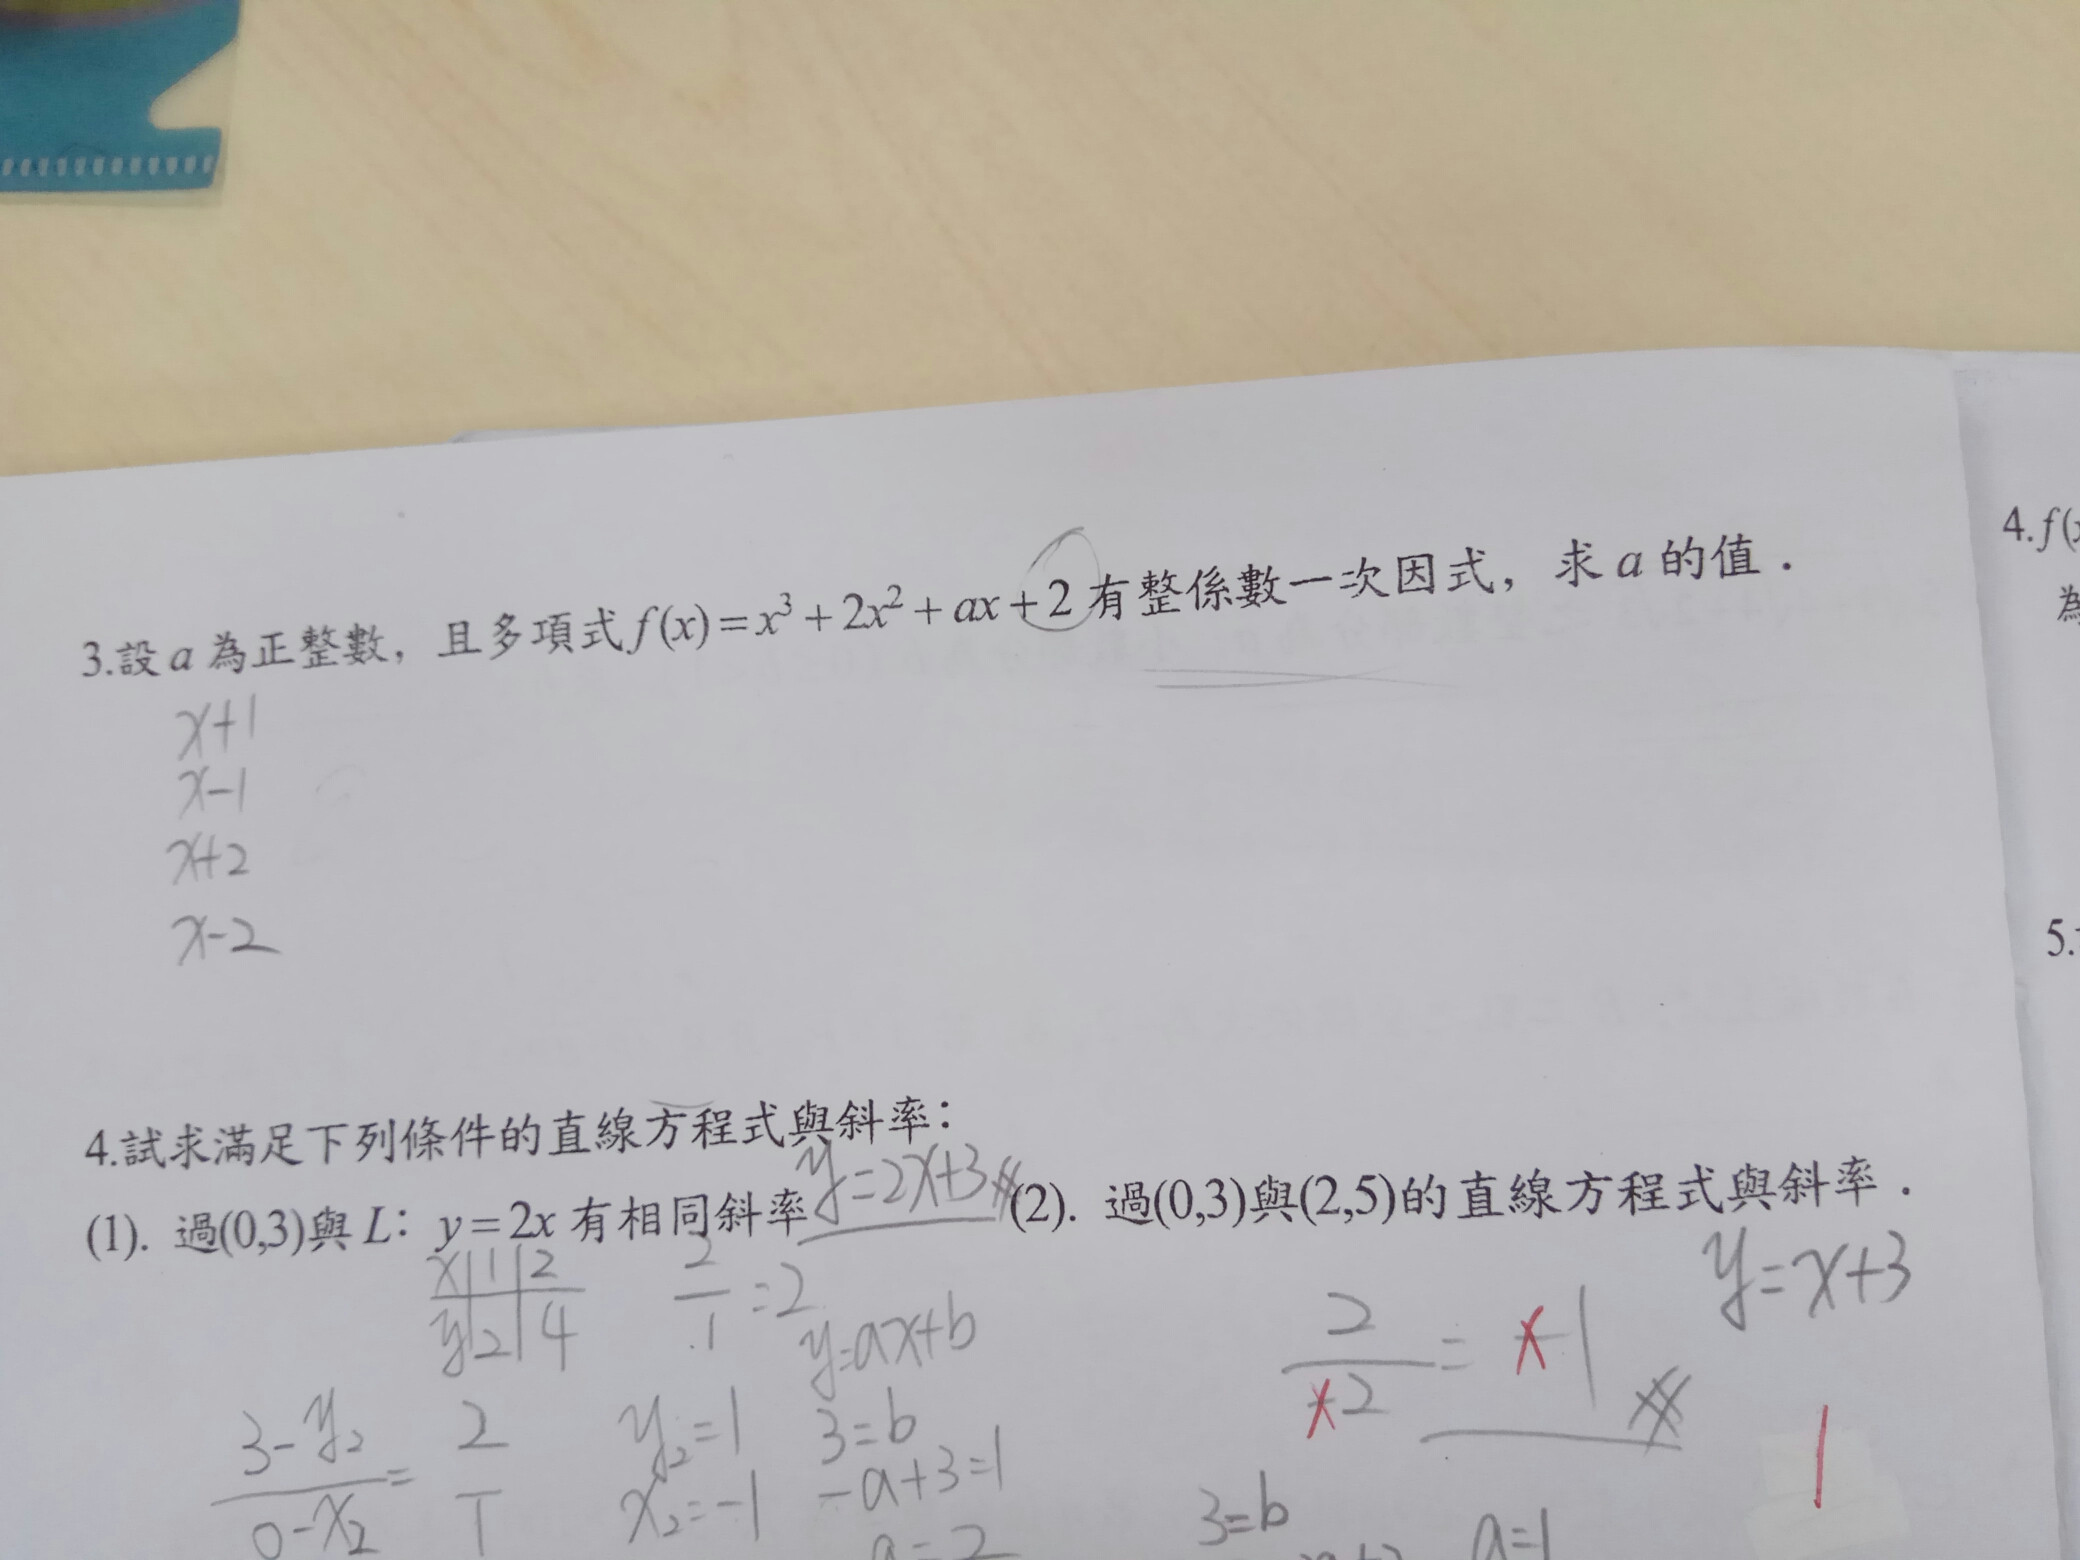 3.設a為正整數，且多項式f(x)=x³+2x²+ax+2有整係數一次因式，求a的值．
x+1
x-1
x+2
x-2
4.試求滿足下列條件的直線方程式與斜率：
(1). 過(0,3)與L：y=2x有相同斜率 y=2x+3
x 1 2
y 2 4
2/1=2
y=ax+b
3-y₂/0-x₂=2/1
y₂=1
x₂=-1
3=b
-a+3=1
a=2
(2). 過(0,3)與(2,5)的直線方程式與斜率．
y=x+3
2/-2=-1
3=b
a=1
4.f(x
為
5.